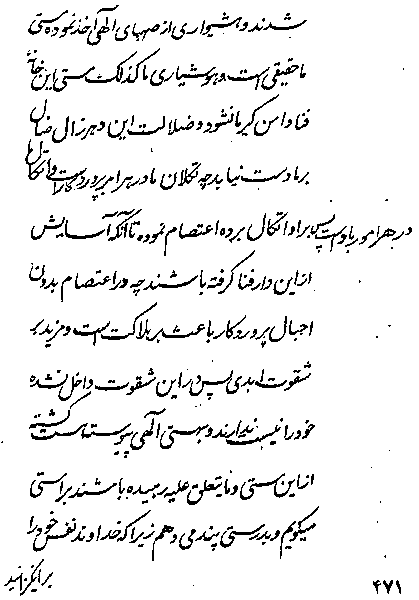 شدند و هشیواری از صهبای الهی اخذ نموده مستی
ما حقیقی است و هوشیاری ما کذلک مستی این خانهٔ
فنا دامن گیر ما نشود و ضلالت این دهر زال ضال
بر ما دست نیابد چه تکلان ما در هر امر بپروردگار و اتکال ما
در هر امور باوست پس بر او اتکال برده اعتصام نموده تا آنکه آسایش
از این دار فنا گرفته باشند چه در اعتصام بدون
احبال پروردگار باعث بر هلاکت است و مزید بر
شقوت ابدی پس در این شقوت داخل نشده
خود را نیست ندارند و بهستی الهی پیوسته است گشته
از این مستی و ما یتعلق علیه رهیده باشند براستی
میگویم و بدرستی پند می دهم زیرا که خداوند نفس خود را
برانگیزانید
۴۷۱